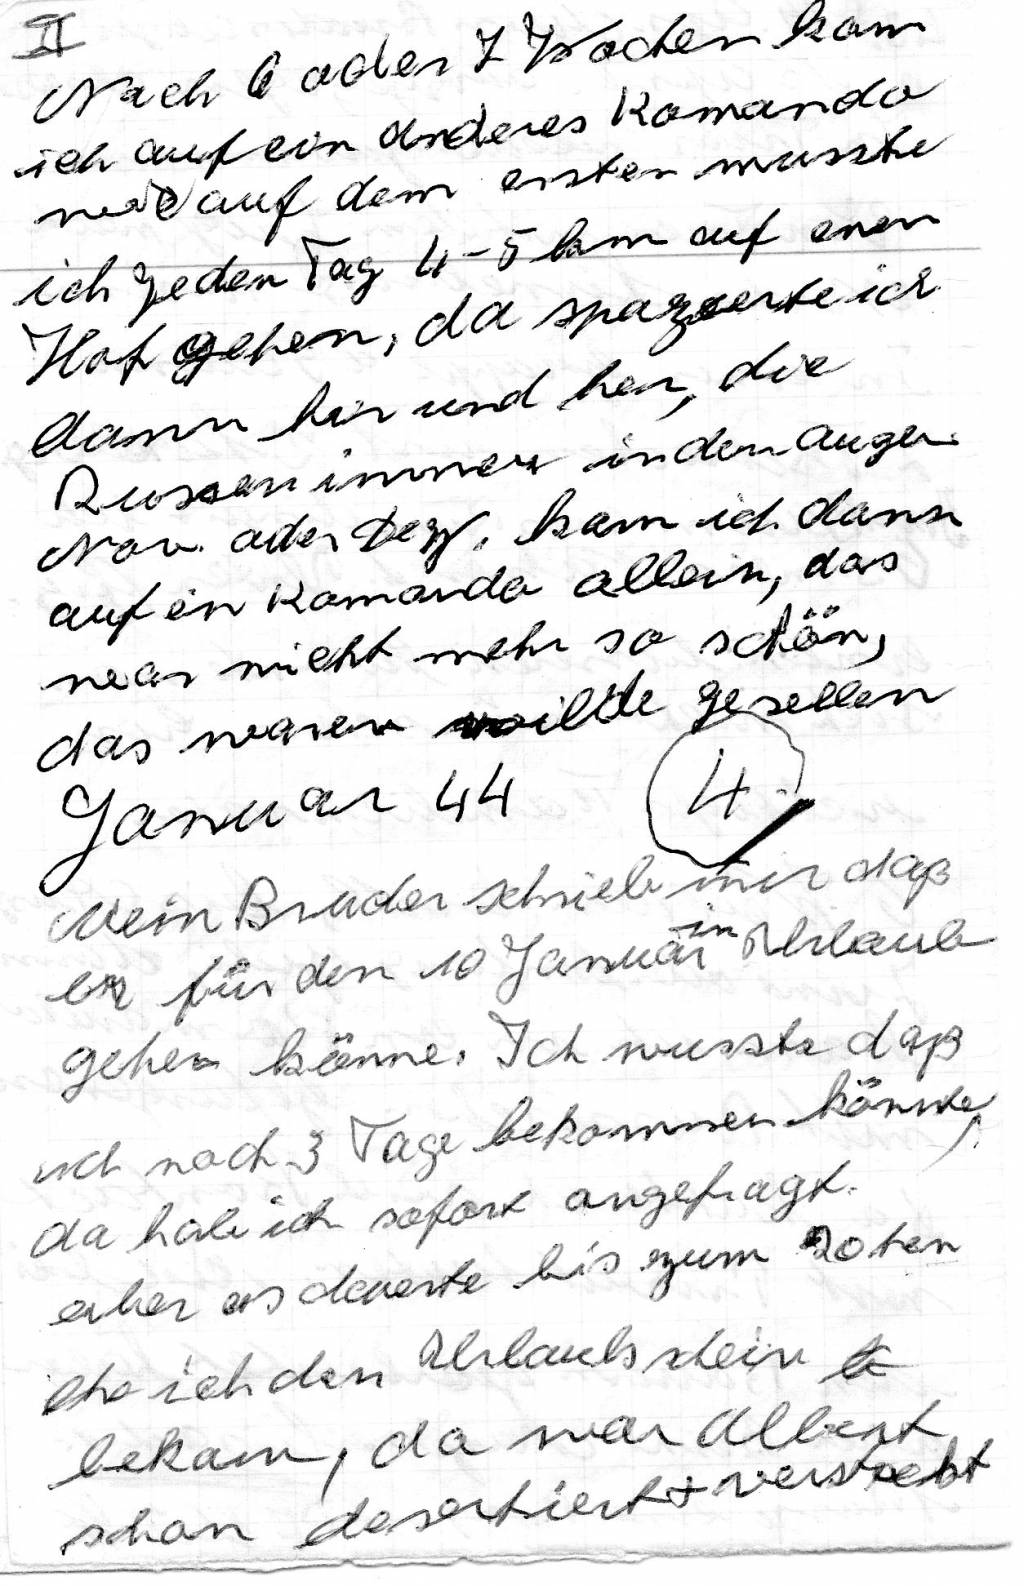 II
Nach 6 oder 7 Wochen kam
ich auf ein anderes Komando
auf dem ersten musste
ich jeden Tag 4-5 km auf enen
Hof gehen, da spazierte ich
dann hin und her, die
Russen immer in den Augen
Nov. oder Dez. kam ich dann
auf ein Komando allein, das
war nicht mehr so schön,
das waren wilde gesellen
Januar 44
4.
Mein Bruder schrieb mir daß
er für den 10 Januar in Urlaub
gehen könne. Ich wusste daß
ich noch 3 Tage bekommen könnte,
da hab ich sofort angefragt.
aber es dauerte bis zum 20 ten
ehe ich den Urlaubschein
bekam, da war Albert
schon desertiert + versteckt